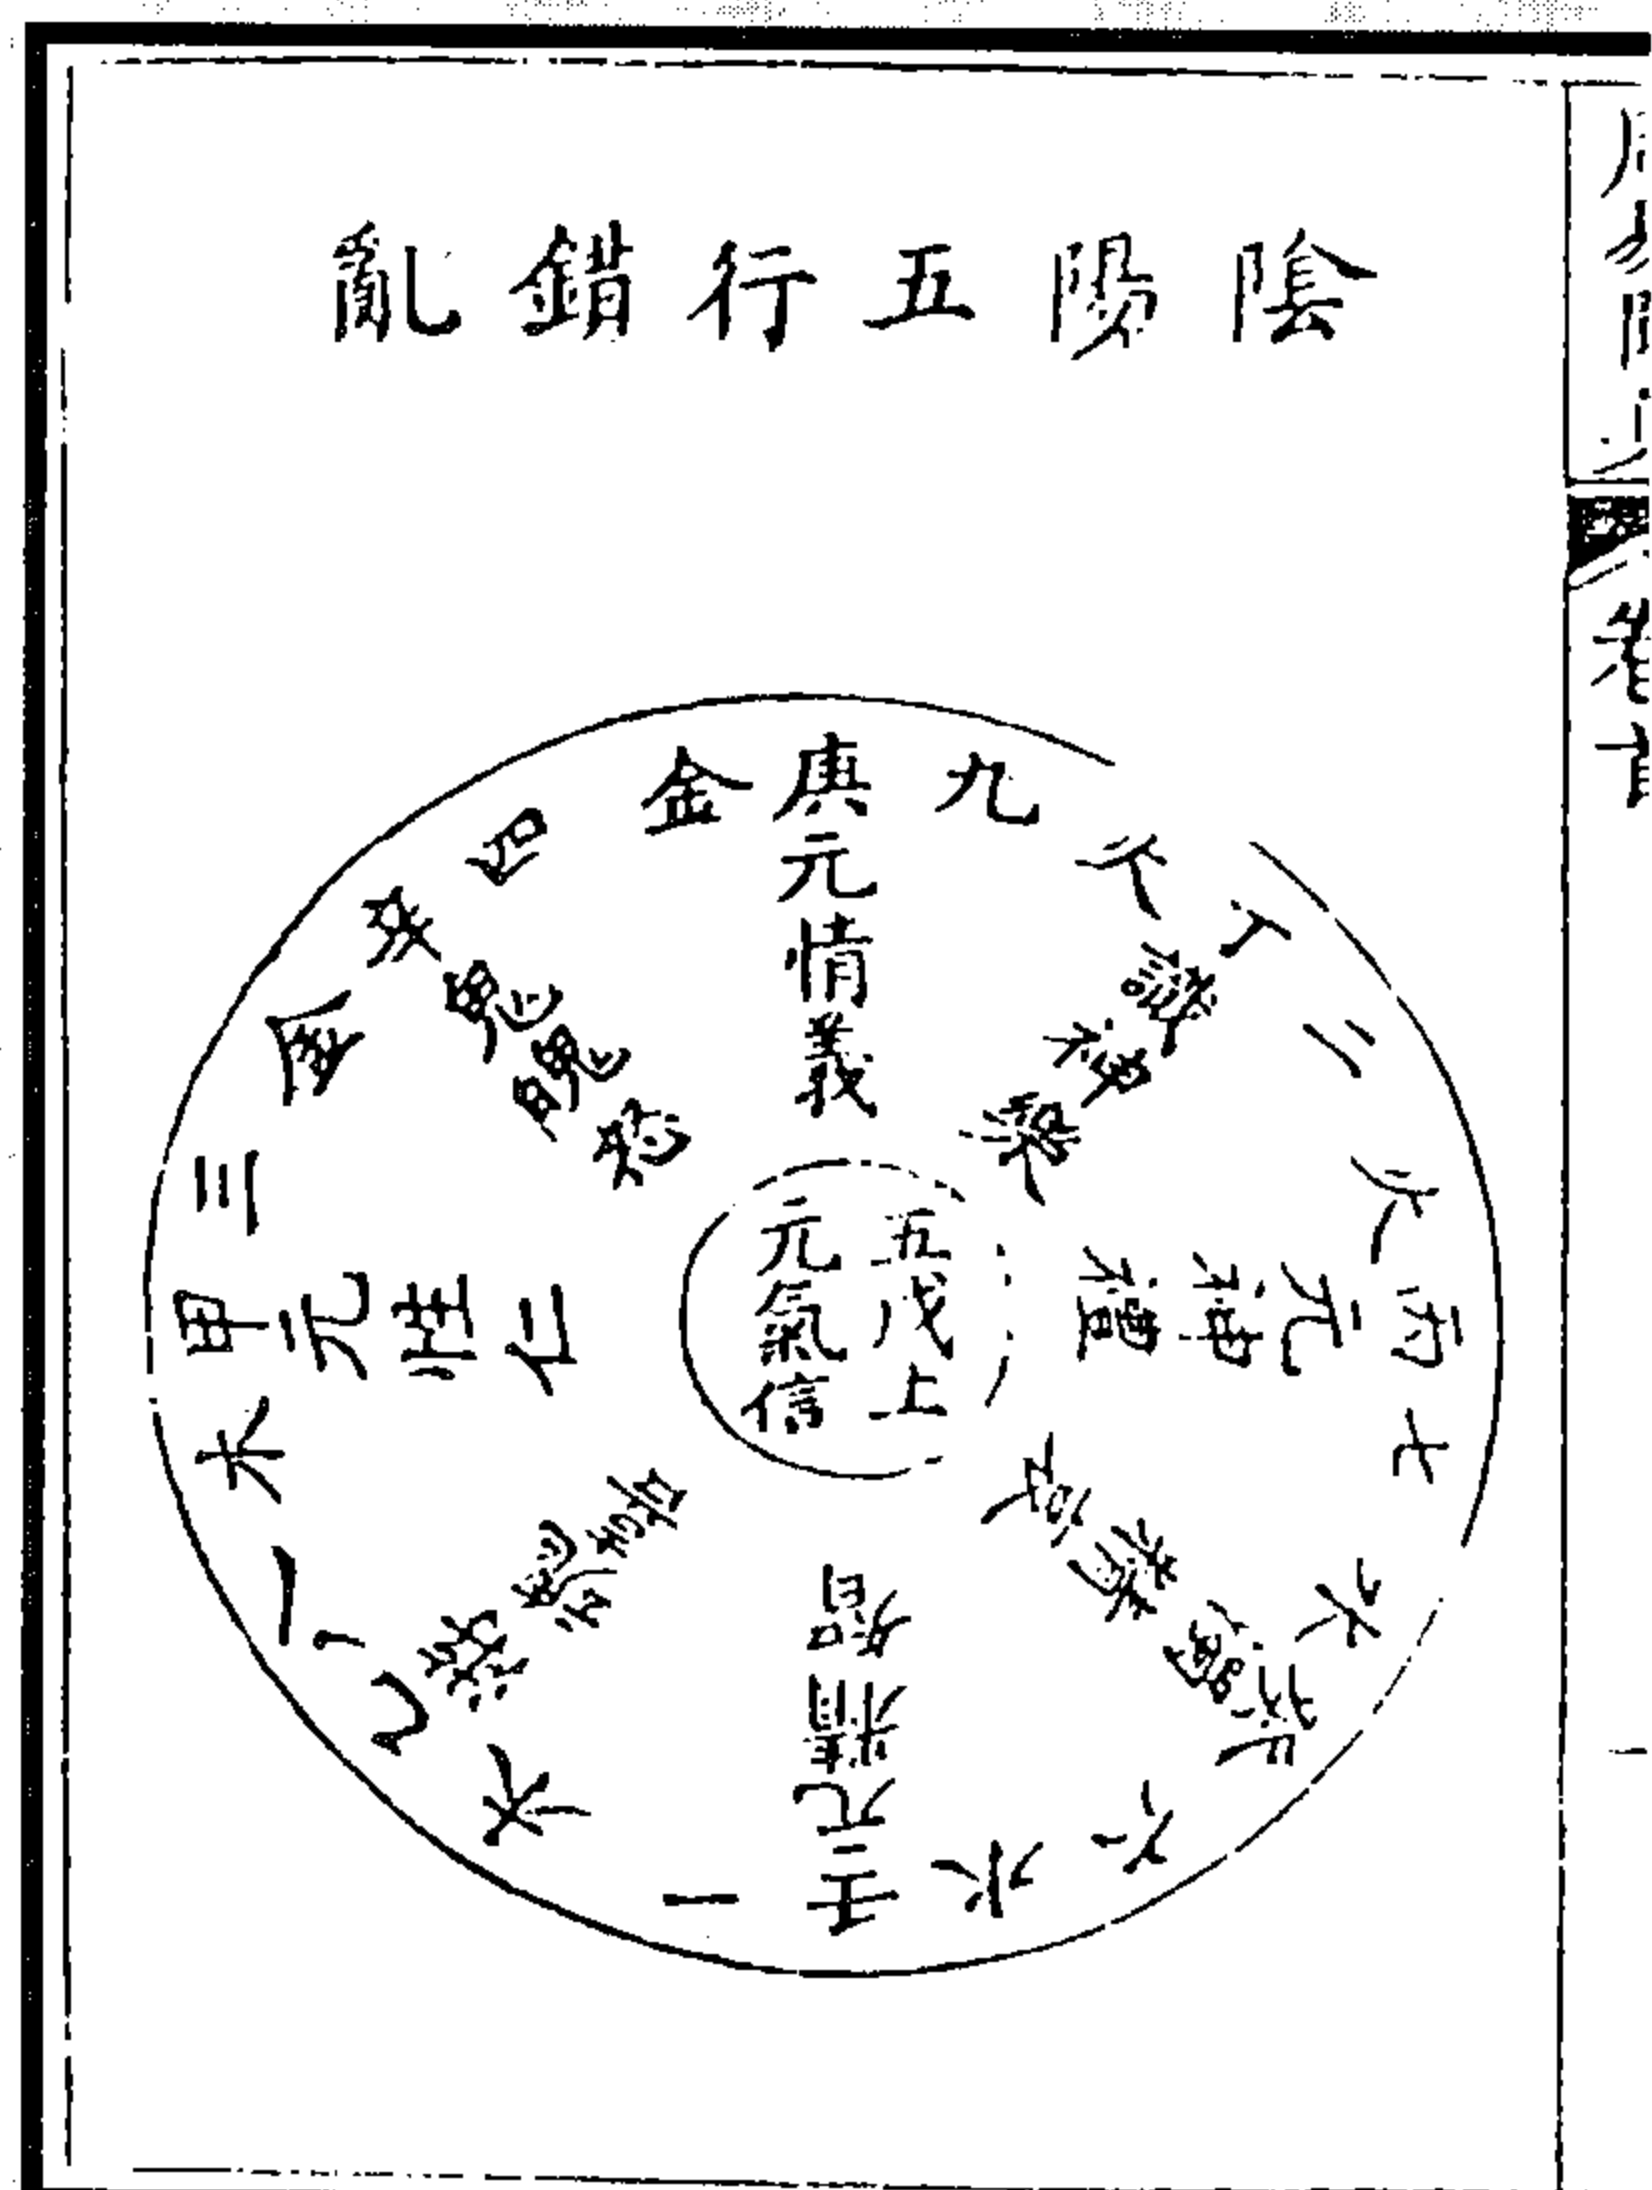 陰陽五行錯亂
九庚金
元情義
四辛金
鬼魄怒
三甲木
元性仁
八乙木
一壬水
元精智
六癸水
七丙火
元神禮
二丁火
識神樂
五戊土
元氣信